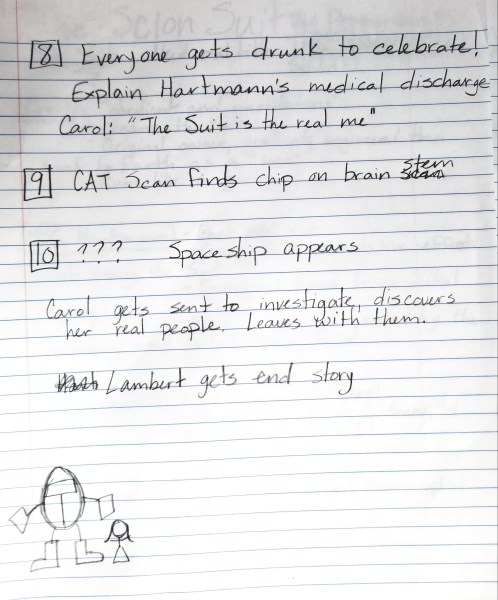 8 Everyone gets drunk to celebrate!
Explain Hartmann's medical discharge
Carol: "The Suit is the real me"
9 CAT Scan finds chip on brain stem
10 ??? Spaceship appears
Carol gets sent to investigate, discovers
her real people. Leaves with them.
Lambert gets end story